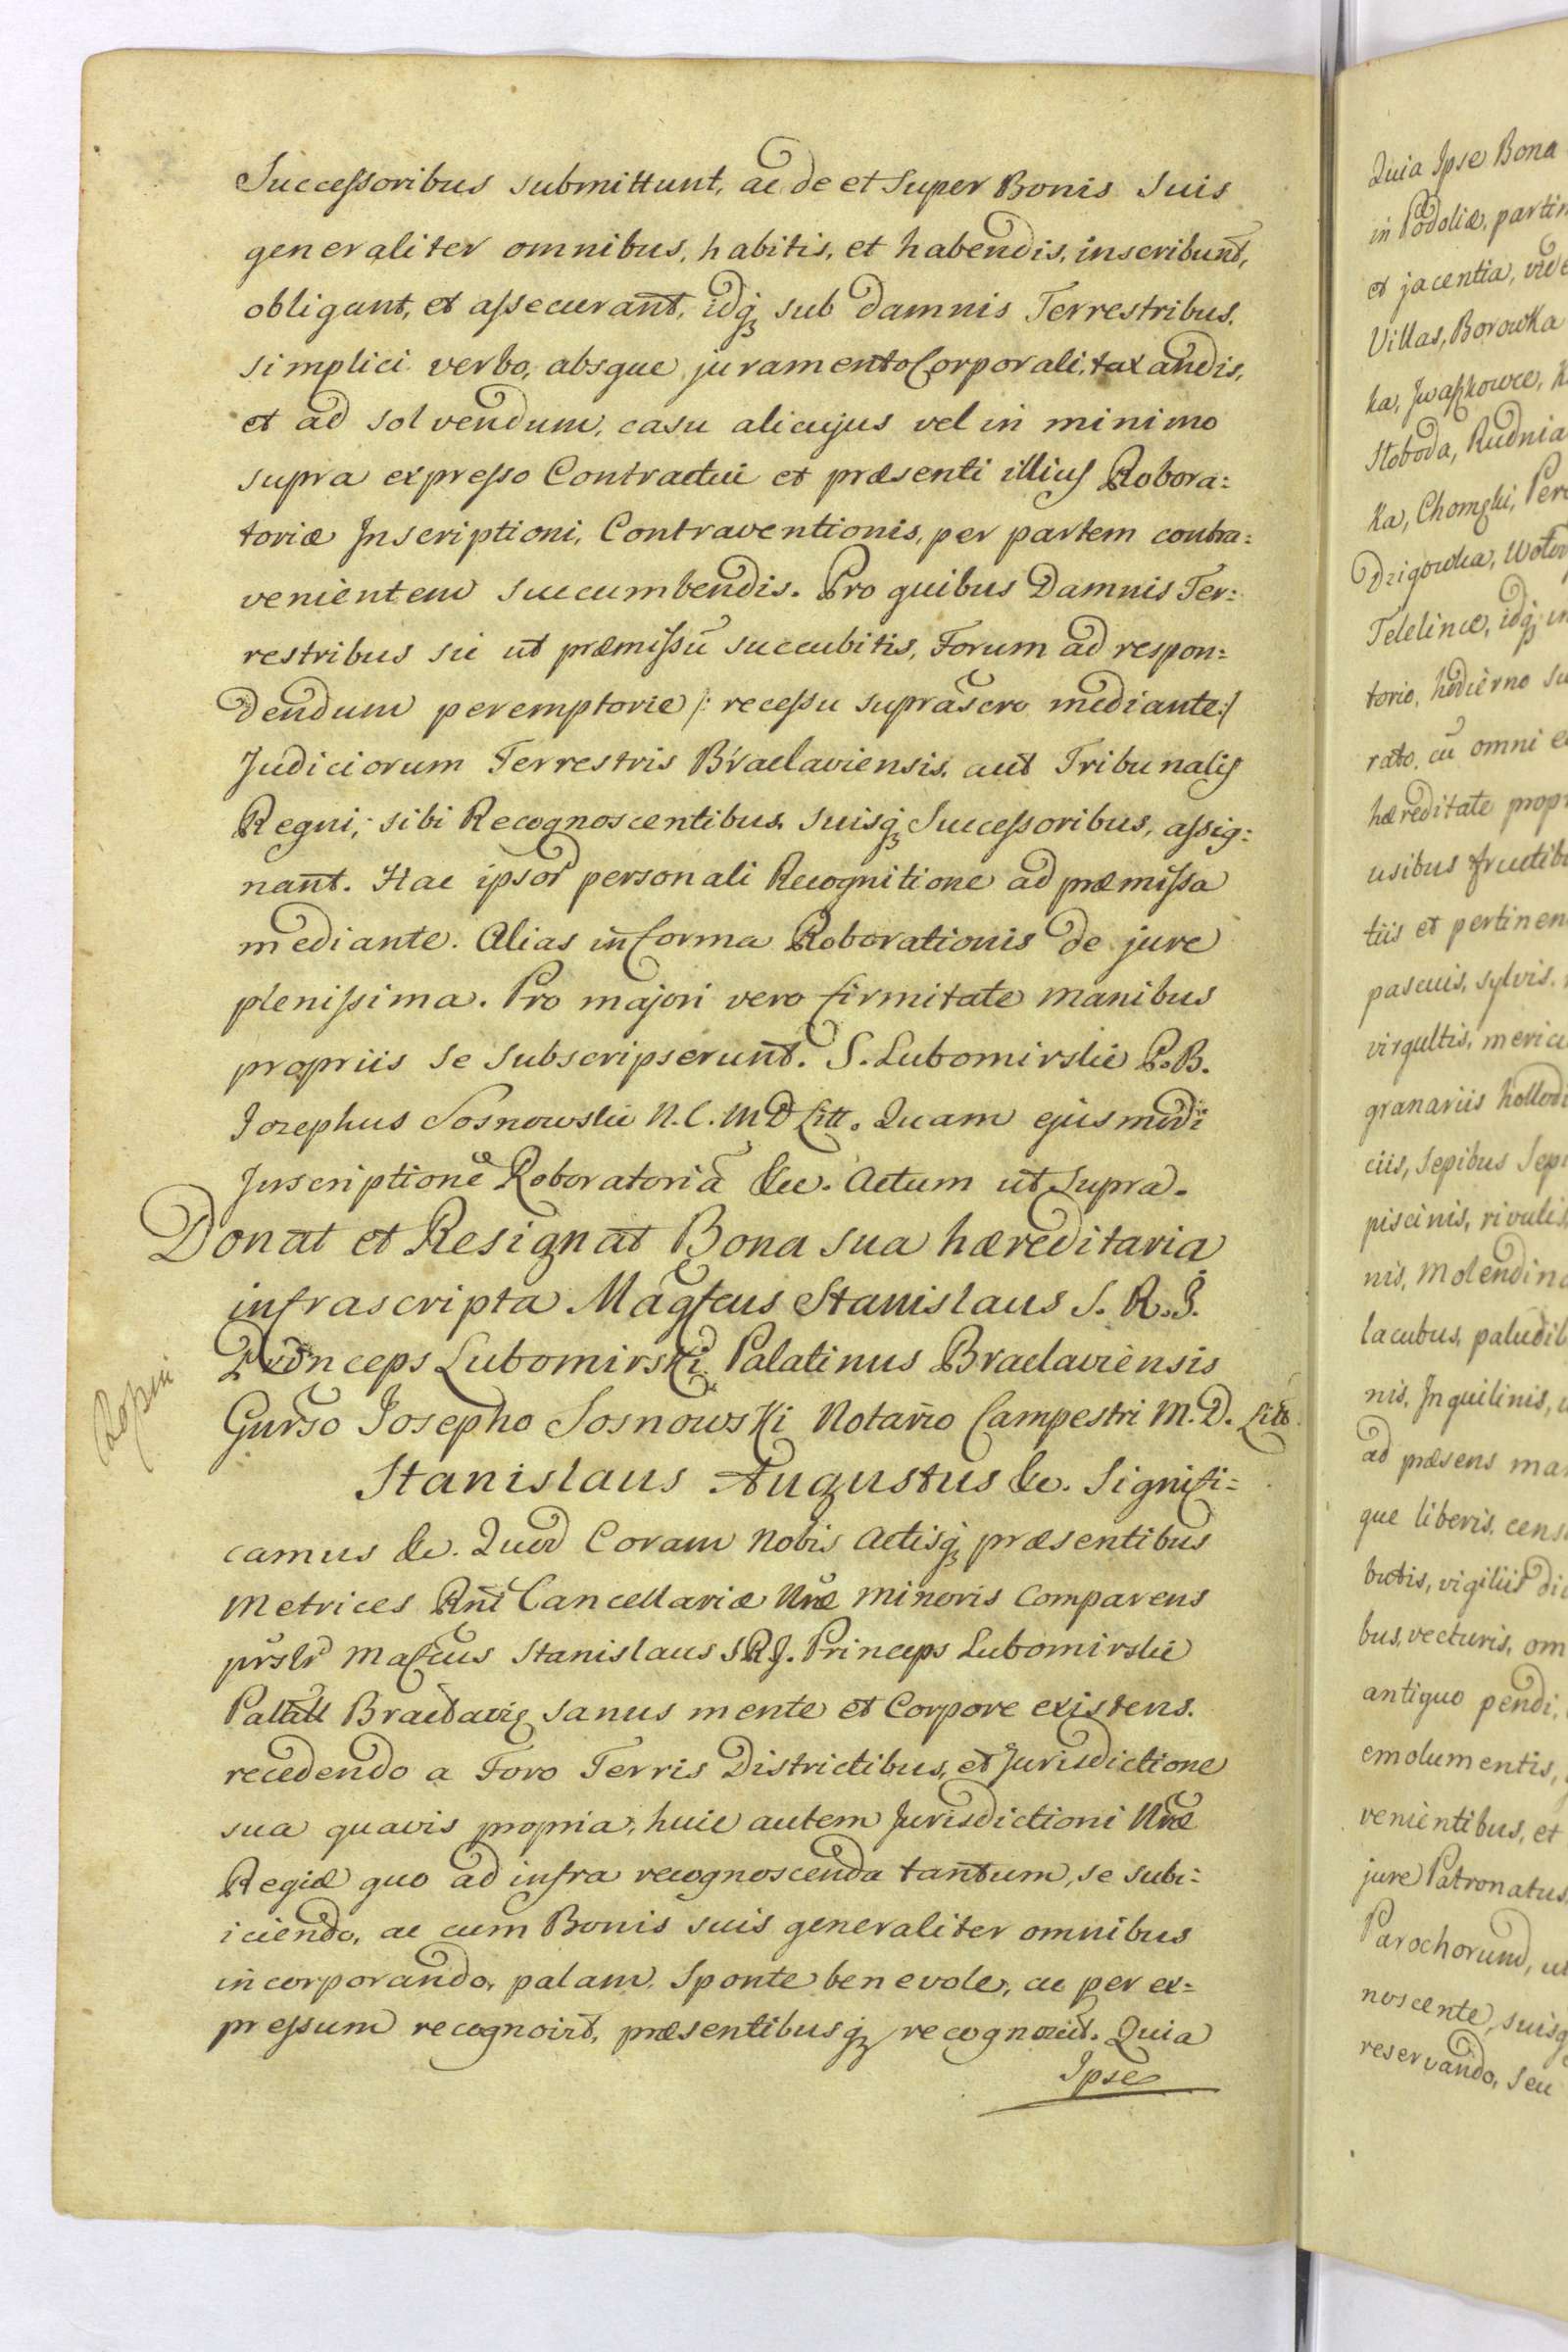 Successoribus submittunt, ac de et super Bonis suis
generaliter omnibus, habitis, et habendis, inscribunt,
obligant, et assecurant, idq3 sub Damnis Terrestribus,
simplici verbo, absque juramento Corporali, taxandis,
et ad solvendum, casu alicujus vel in minimo
supra expresso Contractui et præsenti illius Robora=
toriæ Inscriptioni, Contraventionis, per partem contra=
venientem succumbendis. Pro quibus Damnis Ter=
restribus sic ut præmissũ succubitis, Forum ad respon=
dendum peremptorie /: recessu suprascro mediante :/
Judiciorum Terrestris Braclaviensis, aut Tribunalis
Regni, sibi Recognoscentibus suisq3 Successoribus, assig=
nant. Hac ipsor personali Recognitione ad præmissa
mediante. Alias in forma Roborationis de jure
plenissima. Pro majori vero firmitate manibus
propriis se subscripserunt. S. Lubomirski P. B.
Jozephus Sosnowski N. C. M D Litt. Quam ejusmodi
Inscriptionẽ Roboratoriã &c. Actum ut Supra.
Donat et Resignat Bona sua hæreditaria
infrascripta Magfcus Stanislaus S. R. J.
Princeps Lubomirski Palatinus Braclaviensis
Gnrso Josepho Sosnowski Notario Campestri M. D. Litt.
Stanislaus Augustus &c. Signifi=
camus &c. Quod Coram Nobis Actisq3 præsentibus
Metrices Rni Cancellariæ Nræ minoris Comparens
prslr Mafcus Stanislaus S R J. Princeps Lubomirski
Braclavis sanus mente et Corpore existens.
recedendo a Foro Terris Districtibus, et Jurisdictione
sua quavis propria, huic autem Jurisdictioni Nræ
Regiæ quo ad infra recognoscenda tantum, se subi=
iciendo, ac cum Bonis suis generaliter omnibus
incorporando, palam, sponte benevole, ac per ex=
pressum recognovit, præsentibusq3 recognoscit. Quia
Ipse
Quia Ipse Bona
in Podoliæ, partim
et jacentia, vide
Villas, Borowka
ka, Iwaszkowce, K
Stoboda, Rudnia
ka, Chomzki, Per
Dzigowka,
Telelince, idq3 in
torio, hodierno su
rato, cũ omni
hæreditate propr
usibus fructib
tiis et pertinen
pascuis, sylvis,
virgultis, mericis
granariis
ciis, sepibus sepi
piscinis, rivulis
nis, Molendino
lacubus, paludib
nis, Inquilinis,
ad præsens man
que liberis, cens
butis, vigiliis dic
bus, vecturis, om
antiquo pendi,
emolumentis,
venientibus, et
jure Patronatus,
Parochorum, ut
noscente, suisq
reservando, seu